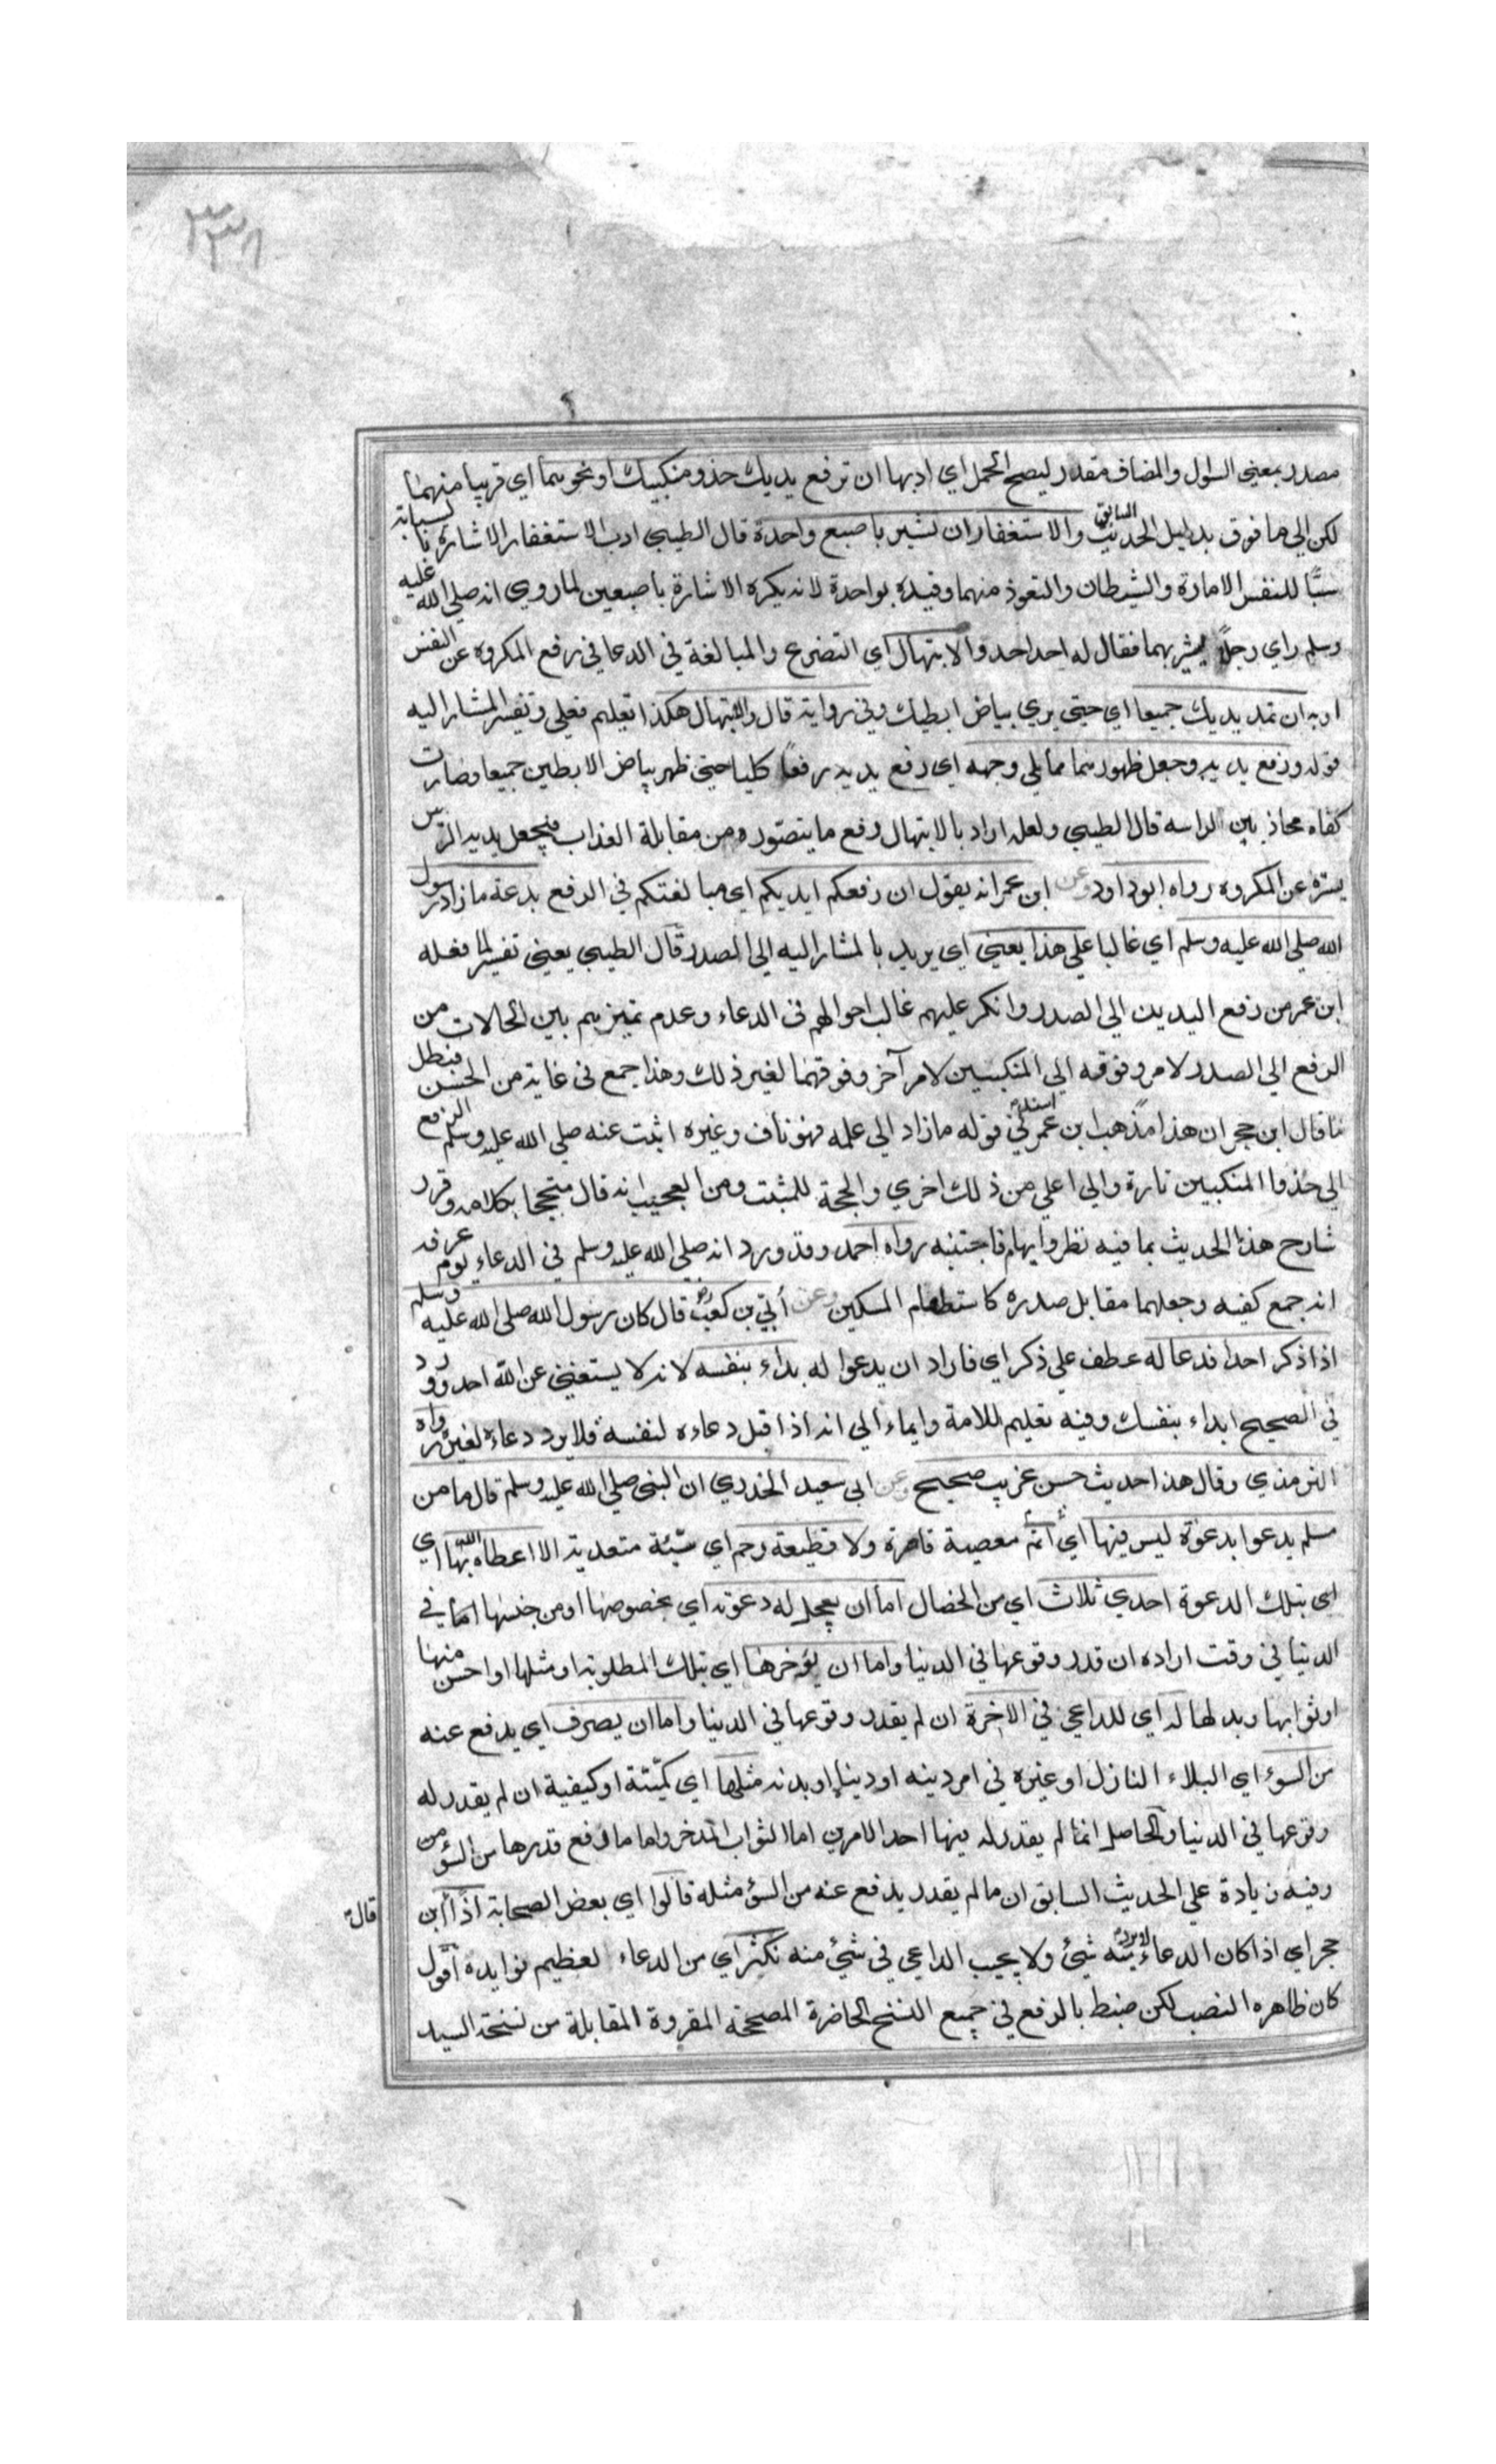 ٣٣٨
مصدر بمعنى السؤال والمضاف مقدر ليصح الحمل اي ادبها ان ترفع يديك حذو منكبيك او نحوهما اي قريبا منهما
لكن الي ما فوق بدليل الحديث السابق والاستغفار ان تشير باصبع واحدة قال الطيبي ادب الاستغفار الاشارة بالسبابة
سبًّا للنفس الامارة والشيطان والتعوذ منهما وقيده بواحدة لانه يكره الاشارة باصبعين لما روي انه صلى الله عليه
وسلم راي رجلاً يشير بهما فقال له احد احد والابتهال اي التضرع والمبالغة في الدعا في رفع المكروه عن النفس
ادبه ان تمد يديك جميعا اي حتى يري بياض ابطيك وفي رواية قال والابتهال هكذا تعليم فعلي وتفسير المشار اليه
قوله ورفع يديه وجعل ظهورهما مما يلي وجهه اي رفع يديه رفعاً كليا حتى ظهر بياض الابطين جميعا وصارت
كفاه محاذيين لراسه قال الطيبي ولعله اراد بالابتهال دفع ما يتصوره من مقابلة العذاب فيجعل يديه الترس
يستره عن المكروه رواه ابو داود وعن ابن عمر انه يقول ان رفعكم ايديكم اي مبالغتكم في الرفع بدعة ما زاد رسول
الله صلى الله عليه وسلم اي غالبا علي هذا يعني اي يريد بالمشار اليه الي الصدر قال الطيبي يعني تفسير لما فعله
ابن عمر من رفع اليدين الي الصدر وانكر عليهم غالب احوالهم في الدعاء وعدم تميزهم بين الحالات من
الرفع الي الصدر لامر وفوقه الي المنكبين لامر آخر وفوقهما لغير ذلك وهذا جمع في غاية من الحسن فبطل
ما قال ابن حجر ان هذا مذهب ابن عمر في قوله ما زاد الي علمه فهو ناف وغيره اثبت عنه صلى الله عليه وسلم الرفع
الي حذو المنكبين تارة والي اعلي من ذلك اخري والحجة للمثبت ومن العجيب انه قال متبجحا بكلامه وقرر
شارح هذا الحديث بما فيه نظر وايهام فاجتنبه رواه احمد وقد ورد انه صلى الله عليه وسلم في الدعاء يوم عرفه
انه جمع كفيه وجعلهما مقابل صدره كاستطعام المسكين وعن أبي بن كعب قال كان رسول الله صلى الله عليه وسلم
اذا ذكر احدا فدعا له عطف علي ذكر اي فاراد ان يدعوا له بداء بنفسه لانه لا يستغني عن الله احد وورد
في الصحيح ابداء بنفسك وفيه تعليم للامة وايماء الي انه اذا قبل دعاءه لنفسه فلا يرد دعاءه لغيره رواه
الترمذي وقال هذا حديث حسن غريب صحيح وعن ابي سعيد الخدري ان النبي صلى الله عليه وسلم قال ما من
مسلم يدعوا بدعوة ليس فيها اي اثم معصية قاصرة ولا قطيعة رحم اي سيئة متعدية الا اعطاه الله بها اي
اي بتلك الدعوة احدي ثلاث اي من الخصال اما ان يعجل له دعوته اي بخصوصها او من جنسها اما في
الدنيا في وقت اراده ان قدر وقوعها في الدنيا واما ان يؤخرها اي بتلك المطلوبة او مثلها او احسن منها
او ثوابها وبدلها له اي للداعي في الاخرة ان لم يقدر وقوعها في الدنيا واما ان يصرف اي يدفع عنه
من السوء اي البلاء النازل او غيره في امر دينه او دنياه او بدنه مثلها اي كميّة او كيفية ان لم يقدر له
وقوعها في الدنيا والحاصل انما لم يقدر له فيها احد الامرين اما الثواب المدخر واما ما دفع قدرها من السؤ من
وفيه زيادة علي الحديث السابق ان ما لم يقدر يدفع عنه من السؤ مثله قالوا اي بعض الصحابة اذا قال ابن
حجر اي اذا كان الدعاء لا يرد منه شئ ولا يجيب الداعي في شئ منه نكثر اي من الدعاء لعظيم فوايده اقول
كان ظاهره النصب لكن ضبط بالرفع في جميع النسخ الحاضرة المصححة المقروة المقابلة من نسخة السيد